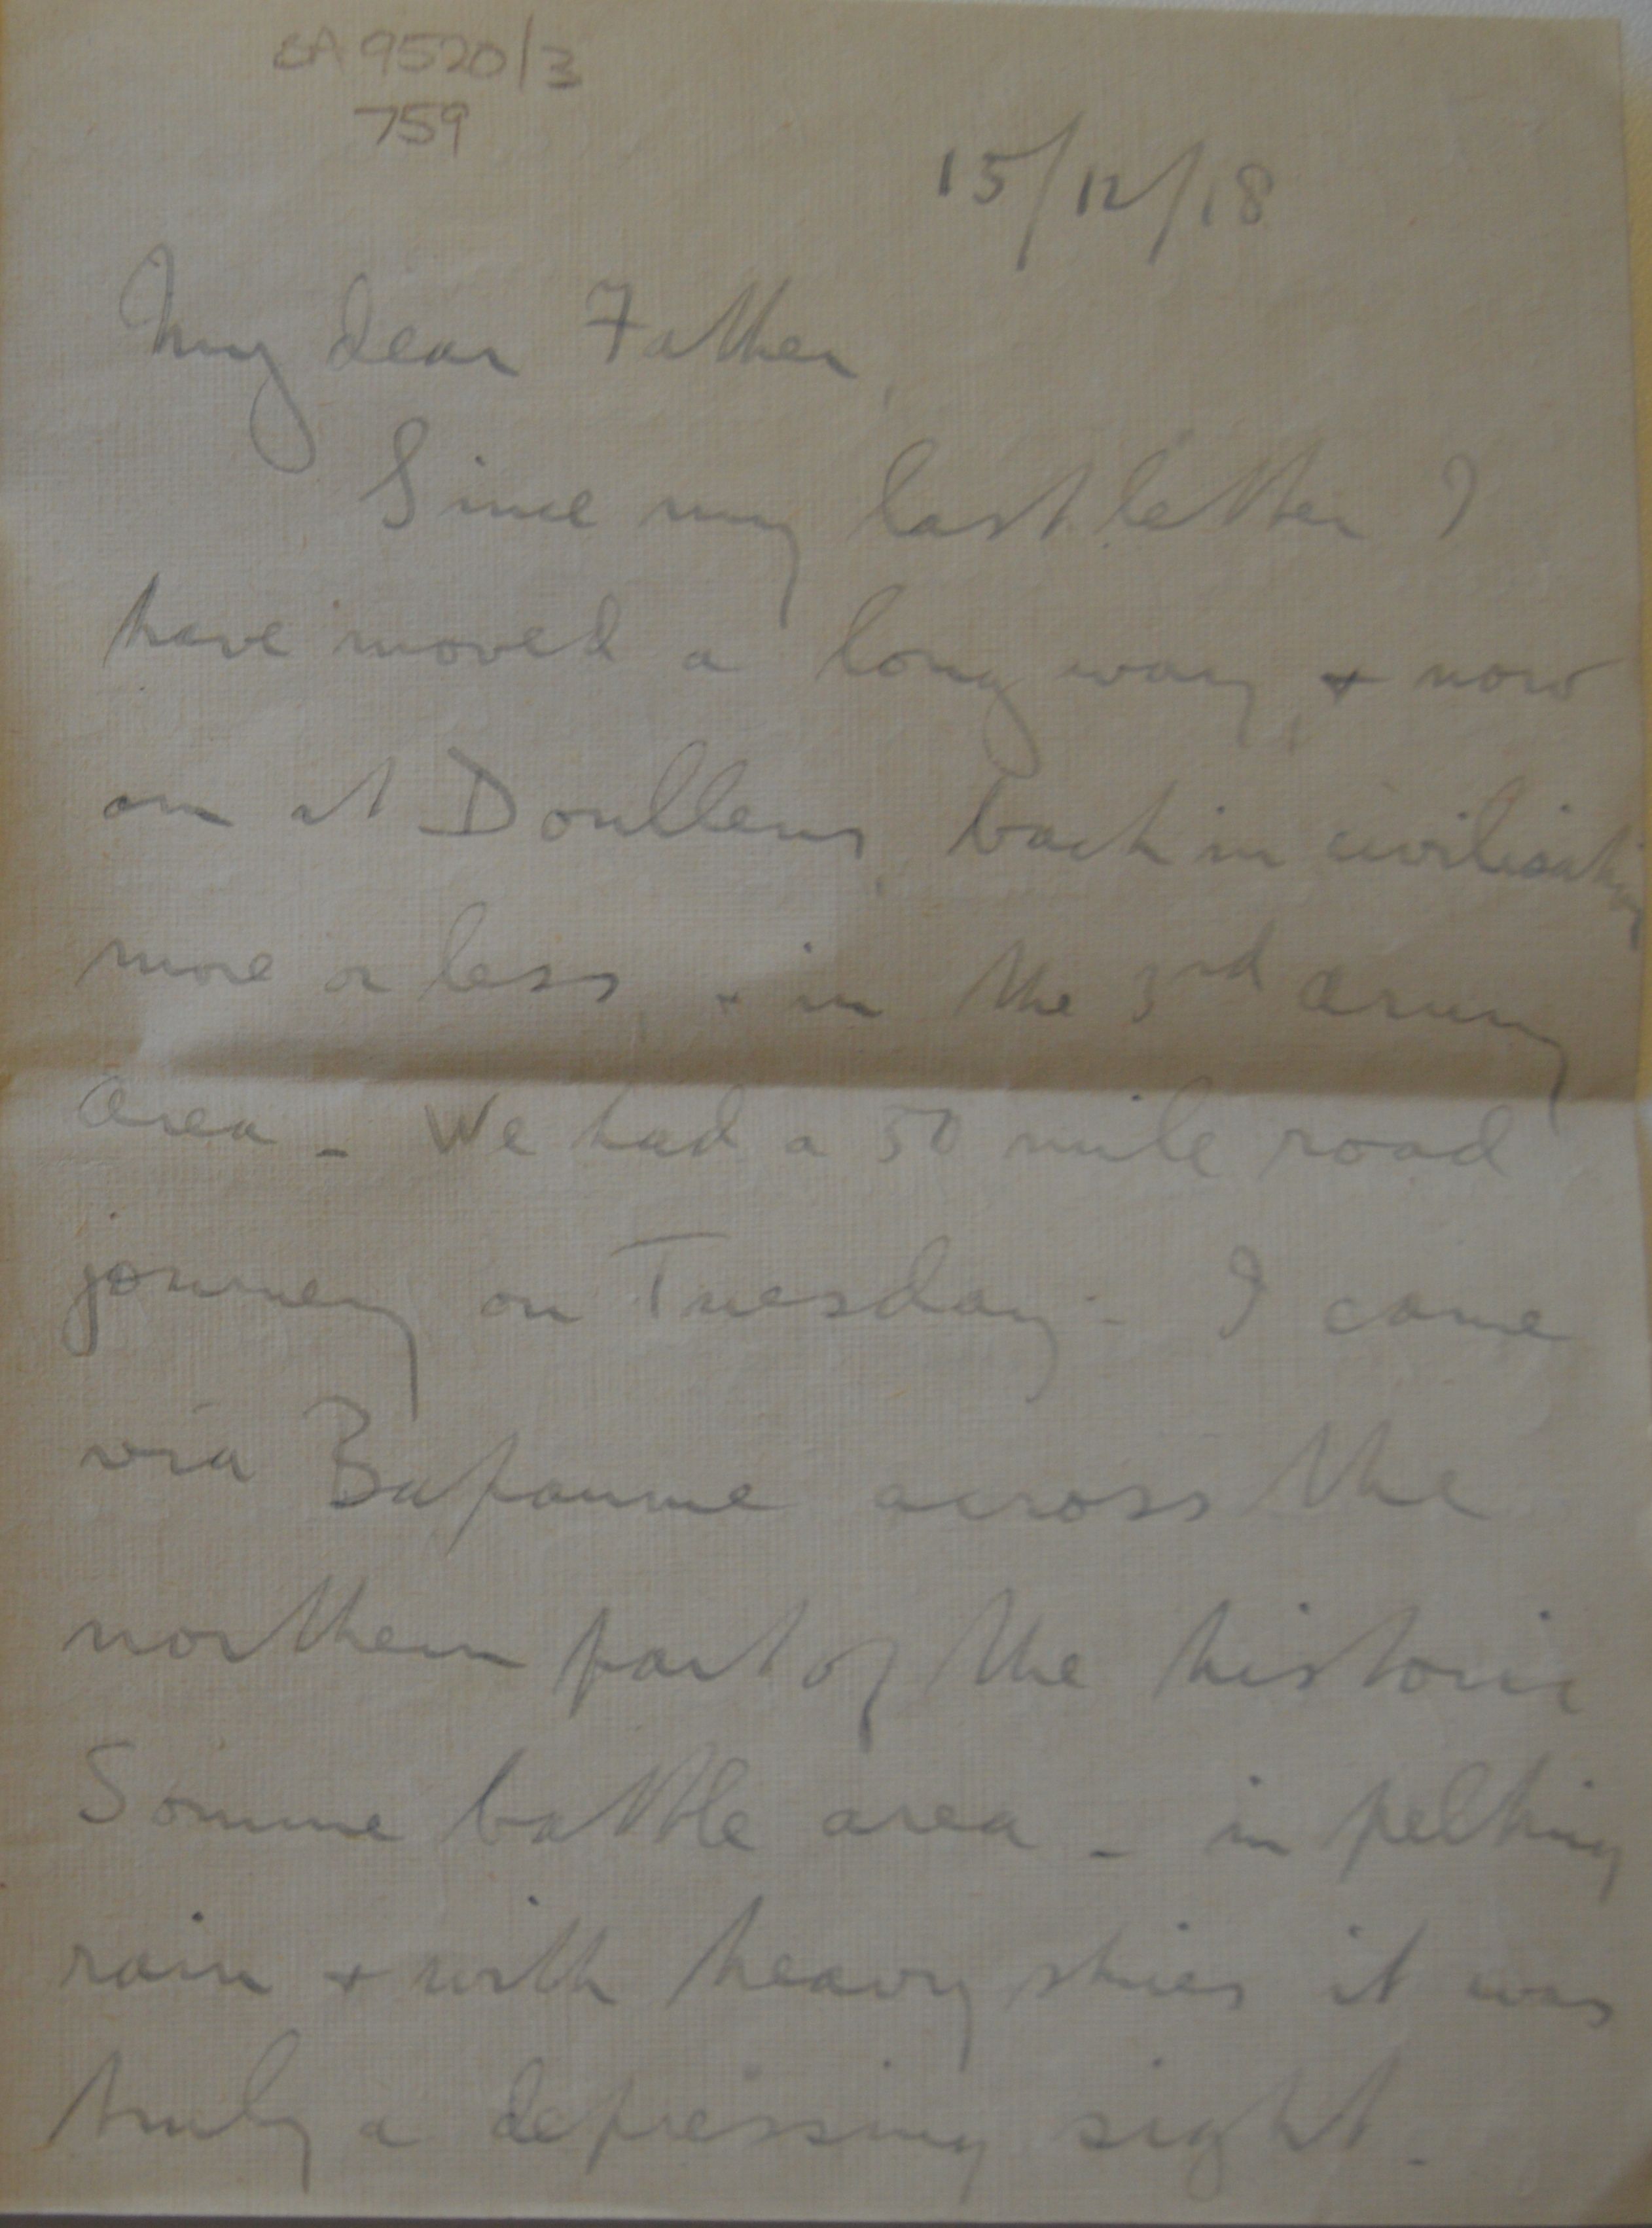 CA 9520/3
759
15/12/18
My dear Father,
Since my last letter I
have moved a long way, & now
am at Doullens, back in civilisation
more or less, & in the 3rd Army
area - We had a 50 mile road
journey on Tuesday - I came
via Bapaume across the
northern part of the historic
Somme battle area - in pelting
rain & with heavy skies it was
truly a depressing sight.